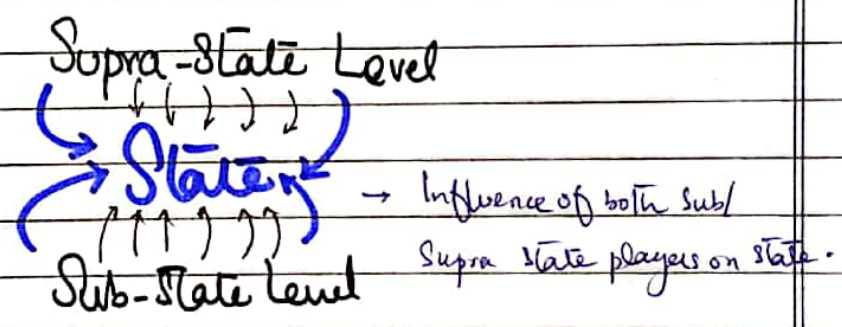 Supra-State Level
State
→ Influence of both sub/
Supra state players on state.
Sub-State Level